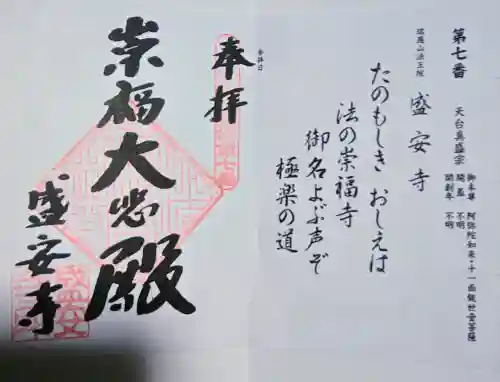 第七番
天台真盛宗
御本尊 阿弥陀如来・十一面観世音菩薩
開基 不明
開創年 不明
瑞應山法王院
盛安寺
たのもしき おしえは
法の崇福寺
御名よぶ声ぞ
極楽の道
参拝日
奉拝
崇福大悲殿
盛安寺